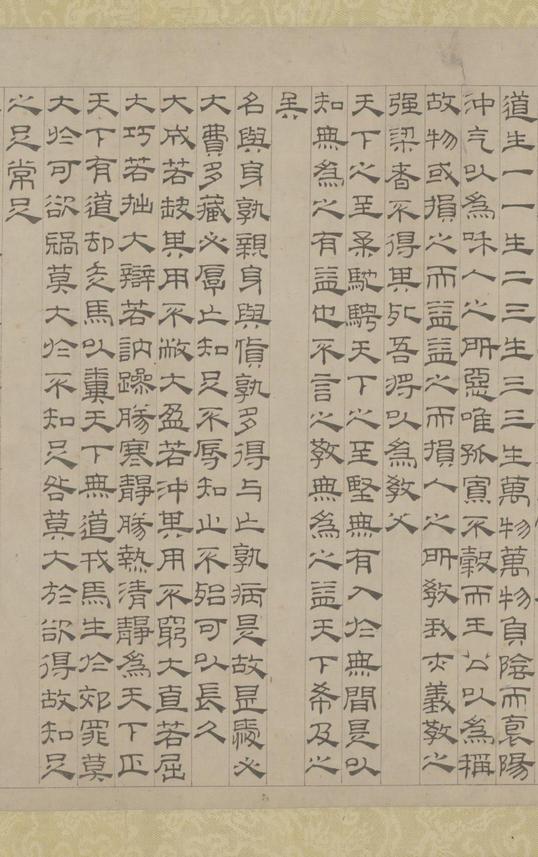 道生一一生二二生三三生萬物萬物負陰而裒陽
沖气以為味人之所惡唯孤寡不穀而王公以為稱
故物或損之而益益之而損人之所敎我亦義敎之
强梁者不得其死吾将以為敎父
天下之至柔馳騁天下之至堅無有入於無間是以
知無為之有益也不言之敎無為之益天下希及之
矣
名與身孰親身與貨孰多得与亡孰病是故甚愛必
大費多藏必厚亡知足不辱知止不殆可以長久
大成若缺其用不敝大盈若沖其用不窮大直若屈
大巧若拙大辯若訥躁勝寒靜勝熱清靜為天下正
天下有道却走馬以糞天下無道戎馬生於郊罪莫
大於可欲禍莫大於不知足咎莫大於欲得故知足
之足常足